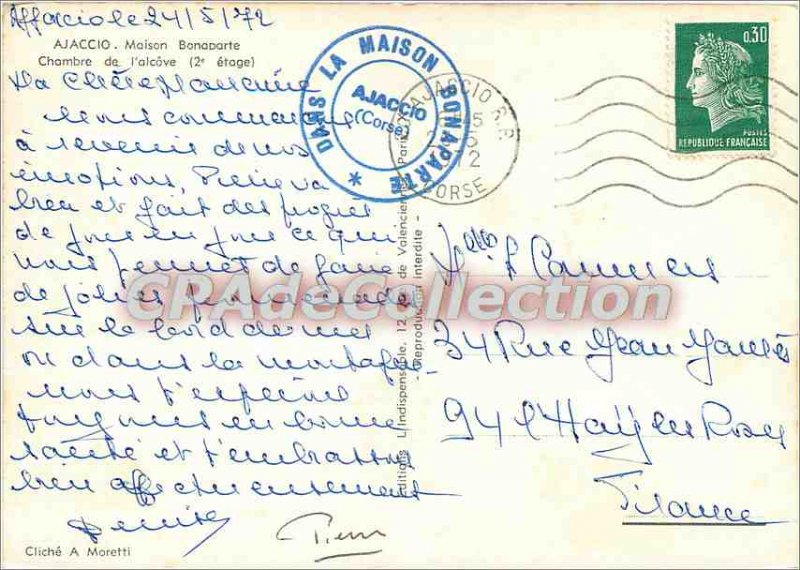 Ajaccio le 24/5/72
AJACCIO. Maison Bonaparte
Chambre de l'alcôve (2e étage)
Ma Chère
Nous commençons
à revenir de nos
émotions, Pierre va
bien et fait des progrès
de jour en jour ce qui
nous permet de faire
de jolies promenades
sur le bord de mer
ou dans la montagne
nous t'espérons
toujours en bonne
santé et t'embrassons
bien affectueusement
Denise
Pierre
Cliché A Moretti
DANS LA MAISON BONAPARTE *
AJACCIO
(Corse)
AJACCIO R.P.
CORSE
0,30
POSTES
REPUBLIQUE FRANÇAISE
Editions L'Indispensable, 12, de Valenciennes, Paris
- Reproduction interdite -
34 Rue Jean Jaurès
94 l'Haÿ les Roses
France
CPAdeCollection.com